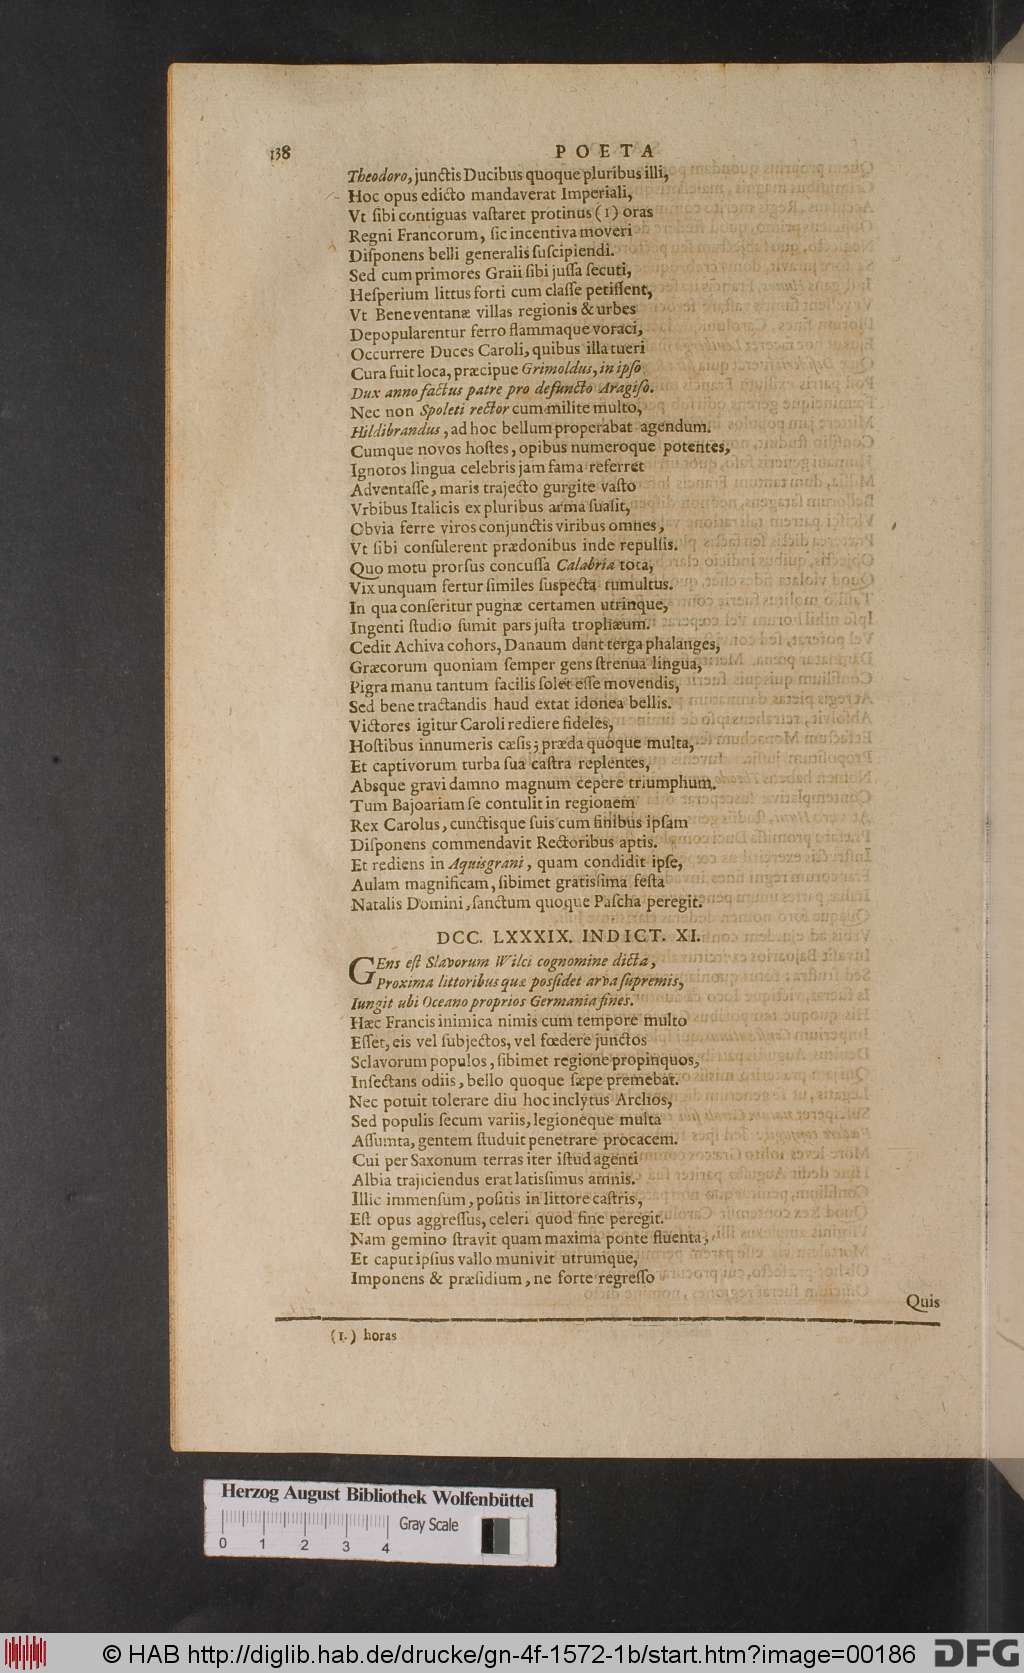 138
POETA
Theodoro, junctis Ducibus quoque pluribus illi,
Hoc opus edicto mandaverat Imperiali,
Vt ſibi contiguas vaſtaret protinus (1) oras
Regni Francorum, ſic incentiva moveri
Diſponens belli generalis ſuſcipiendi.
Sed cum primores Graii ſibi juſſa ſecuti,
Heſperium littus forti cum claſſe petiſſent,
Vt Beneventanæ villas regionis & urbes
Depopularentur ferro flammaque voraci,
Occurrere Duces Caroli, quibus illa tueri
Cura fuit loca, præcipue Grimoldus, in ipſo
Dux anno factus patre pro defuncto Aragiſo.
Nec non Spoleti rector cum milite multo,
Hildibrandus, ad hoc bellum properabat agendum.
Cumque novos hoſtes, opibus numeroque potentes,
Ignotos lingua celebris jam fama referret
Adventaſſe, maris trajecto gurgite vaſto
Vrbibus Italicis ex pluribus arma ſuaſit,
Obvia ferre viros conjunctis viribus omnes,
Vt ſibi conſulerent prædonibus inde repulſis.
Quo motu prorſus concuſſa Calabria tota,
Vix unquam fertur ſimiles ſuſpecta tumultus.
In qua conſeritur pugnæ certamen utrinque,
Ingenti ſtudio ſumit pars juſta trophæum.
Cedit Achiva cohors, Danaum dant terga phalanges,
Græcorum quoniam ſemper gens ſtrenua lingua,
Pigra manu tantum facilis ſolet eſſe movendis,
Sed bene tractandis haud extat idonea bellis.
Victores igitur Caroli rediere fideles,
Hoſtibus innumeris cæſis; præda quoque multa,
Et captivorum turba ſua caſtra replentes,
Absque gravi damno magnum cepere triumphum.
Tum Bajoariam ſe contulit in regionem
Rex Carolus, cunctisque ſuis cum finibus ipſam
Diſponens commendavit Rectoribus aptis.
Et rediens in Aquisgrani, quam condidit ipſe,
Aulam magnificam, ſibimet gratiſsima feſta
Natalis Domini, ſanctum quoque Paſcha peregit.
DCC. LXXXIX. INDICT. XI.
GEns eſt Slavorum Wilci cognomine dicta,
Proxima littoribus quæ poſſidet arva ſupremis,
Iungit ubi Oceano proprios Germania fines.
Hæc Francis inimica nimis cum tempore multo
Eſſet, eis vel ſubjectos, vel fœdere junctos
Sclavorum populos, ſibimet regione propinquos,
Inſectans odiis, bello quoque ſæpe premebat.
Nec potuit tolerare diu hoc inclytus Arclios,
Sed populis ſecum variis, legioneque multa
Aſſumta, gentem ſtuduit penetrare procacem.
Cui per Saxonum terras iter iſtud agenti
Albia trajiciendus erat latiſſimus amnis.
Illic immenſum, poſitis in littore caſtris,
Eſt opus aggreſſus, celeri quod fine peregit.
Nam gemino ſtravit quam maxima ponte fluenta,
Et caput ipſius vallo munivit utrumque,
Imponens & præſidium, ne forte regreſſo
Quis
(1.) horas
Herzog August Bibliothek Wolfenbüttel
Gray Scale
0 1 2 3 4
© HAB http://diglib.hab.de/drucke/gn-4f-1572-1b/start.htm?image=00186
DFG